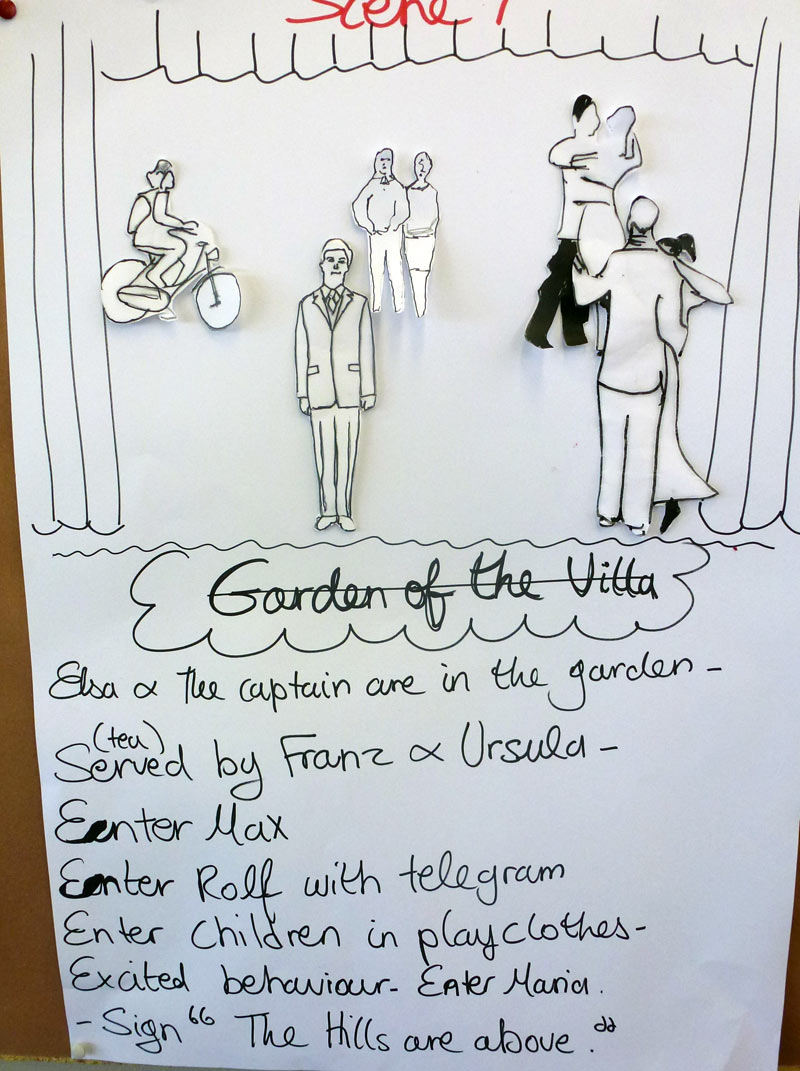 Scene 7
Garden of the Villa
Elsa & The captain are in the garden -
(tea)
Served by Franz & Ursula -
Eenter Max
Eenter Rolf with telegram
Enter Children in playclothes-
Excited behaviour- Enter Maria.
- Sign “ The Hills are above .”